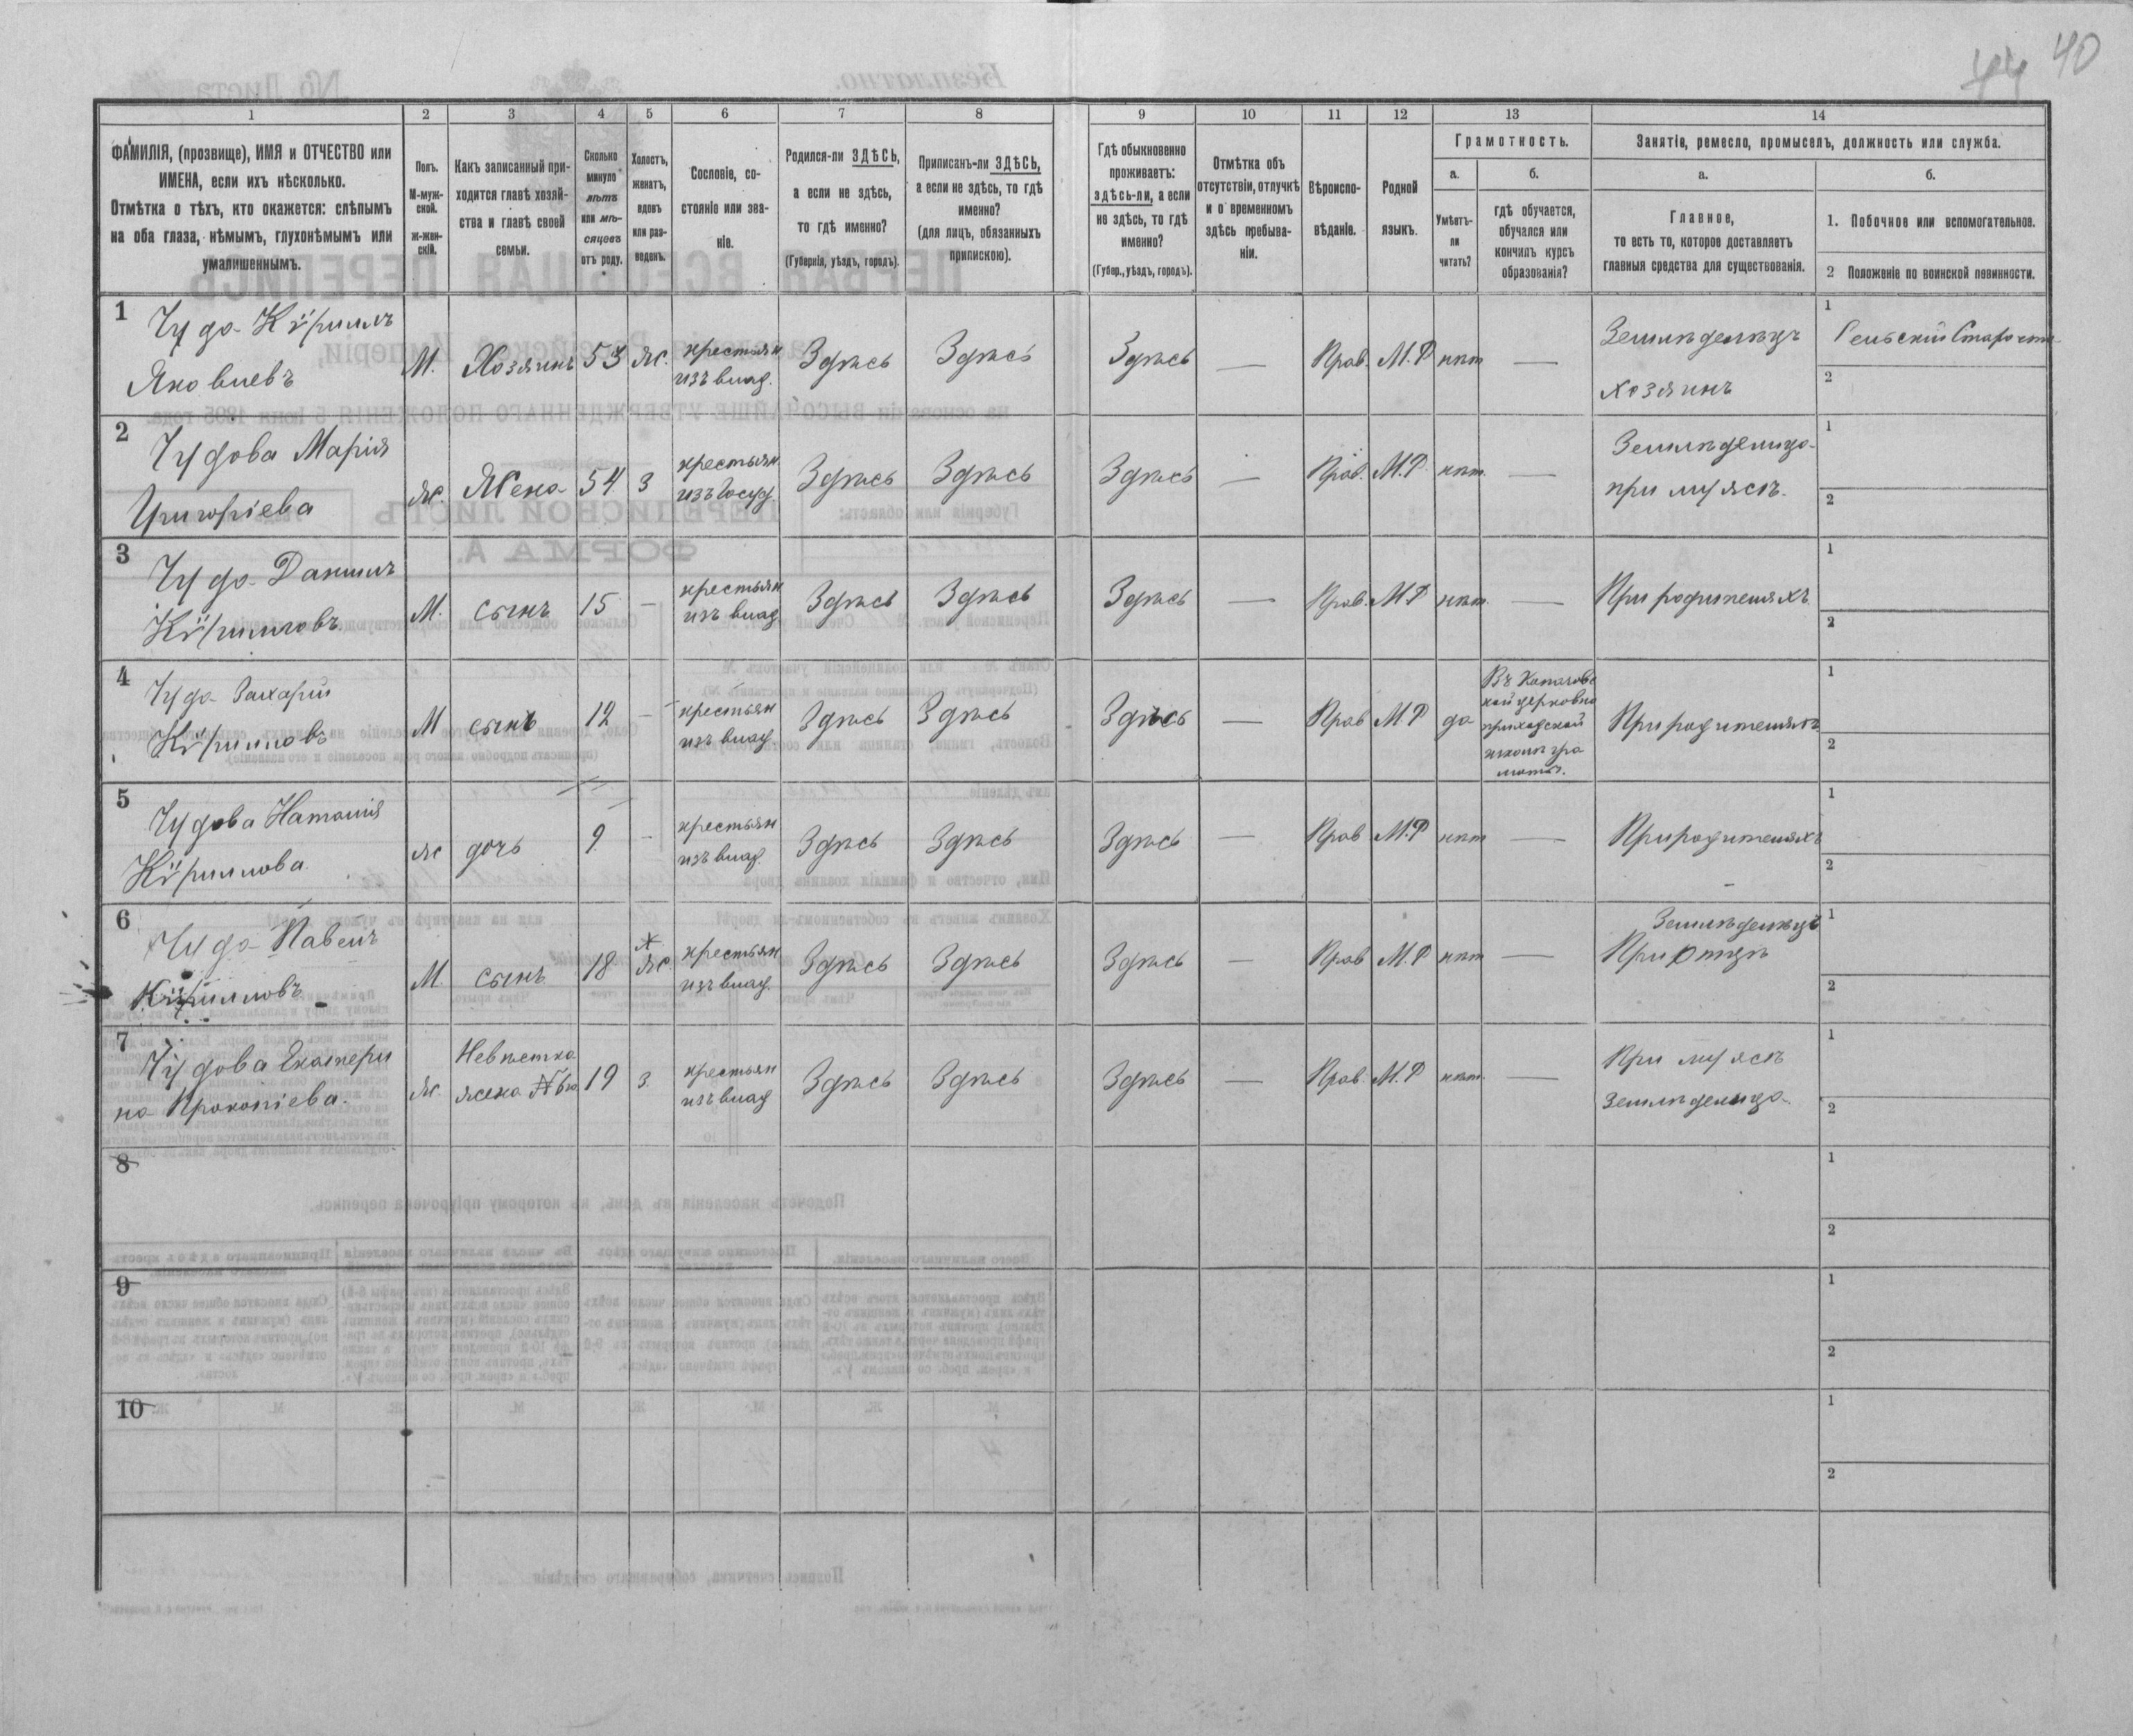 44 40
1 2 3 4 5 6 7 8 9 10 11 12 13 14
ФАМИЛІЯ, (прозвище), ИМЯ и ОТЧЕСТВО или ИМЕНА, если ихъ нѣсколько.
Отмѣтка о тѣхъ, кто окажется: слѣпымъ на оба глаза, нѣмымъ, глухонѣмымъ или умалишеннымъ.
Полъ. М-мужской. ж-женскій.
Какъ записанный приходится главѣ хозяйства и главѣ своей семьи.
Сколько минуло лѣтъ или мѣсяцевъ отъ роду.
Холостъ, женатъ, вдовъ или разведенъ.
Сословіе, состояніе или званіе.
Родился-ли ЗДѢСЬ, а если не здѣсь, то гдѣ именно?
(Губернія, уѣздъ, городъ).
Приписанъ-ли ЗДѢСЬ, а если не здѣсь, то гдѣ именно?
(для лицъ, обязанныхъ припискою).
Гдѣ обыкновенно проживаетъ: здѣсь-ли, а если не здѣсь, то гдѣ именно?
(Губер., уѣздъ, городъ).
Отмѣтка объ отсутствіи, отлучкѣ и о временномъ здѣсь пребываніи.
Вѣроисповѣданіе.
Родной языкъ.
Грамотность.
а. Умѣетъ-ли читать?
б. гдѣ обучается, обучался или кончилъ курсъ образованія?
Занятіе, ремесло, промыселъ, должность или служба.
а. Главное,
то есть то, которое доставляетъ главныя средства для существованія.
б.
1. Побочное или вспомогательное.
2 Положеніе по воинской повинности.
1 Чудо Кѵрилъ Яковлевъ М. Хозяинъ 53 ж. крестьян изъ влад. Здѣсь Здѣсь Здѣсь — Прав. М.Р нѣт — Земледѣлецъ хозяинъ 1 Сельскій Староста 2
2 Чудова Марія Григоріева ж. Жена 54 З крестьян изъ Госуд. Здѣсь Здѣсь Здѣсь — Прав. М.Р. нѣт. — Земледѣлица при мужѣ. 1 2
3 Чудо Данилъ Кѵрилловъ М. сынъ 15 — крестьян изъ влад Здѣсь Здѣсь Здѣсь — Прав. М.Р нѣт. — При родителяхъ 1 2
4 Чудо Захарій Кѵрилловъ М сынъ 12 — крестьян изъ влад Здѣсь Здѣсь Здѣсь — Прав М.Р да приходской школѣ грамоты. При родителяхъ 1 2
5 Чудова Наталія Кѵриллова ж дочь 9 — крестьян изъ влад. Здѣсь Здѣсь Здѣсь — Прав М.Р нѣт — При родителяхъ 1 2
6 Чудо Павелъ Кѵрилловъ М. сынъ 18 ж. крестьян изъ влад. Здѣсь Здѣсь Здѣсь — Прав М.Р нѣт — Земледѣлецъ При отцѣ 1 2
7 Чудова Екатерина Прокопіева. ж. Невѣстка жена № 6го 19 З. крестьян изъ влад Здѣсь Здѣсь Здѣсь — Прав. М.Р нѣт. — При мужѣ Земледѣлица 1 2
8 1 2
9 1 2
10 1 2